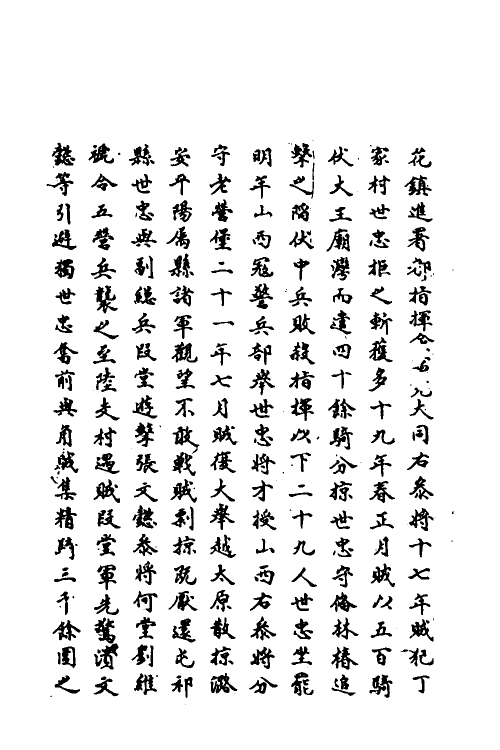 花鎮進署都指揮僉事充大同右叅將十七年賊犯丁
家村世忠拒之斬獲多十九年春正月賊以五百騎
伏大王廟灣而遣四十餘騎分掠世忠守俻林椿追
擊之陷伏中兵敗殺指揮以下二十九人世忠坐罷
明年山西冦警兵部舉世忠將才授山西右叅將分
守老營堡二十一年七月賊復大舉越太原散掠潞
安平陽属縣諸軍觀望不敢戰賊剽掠既厭還屯祁
縣世忠與副緫兵段堂遊擊張文懿叅將何堂劉維
禠合五營兵襲之至陸支村遇賊段堂軍先驚潰文
懿等引避獨世忠奮前與角賊集精騎三千餘圍之